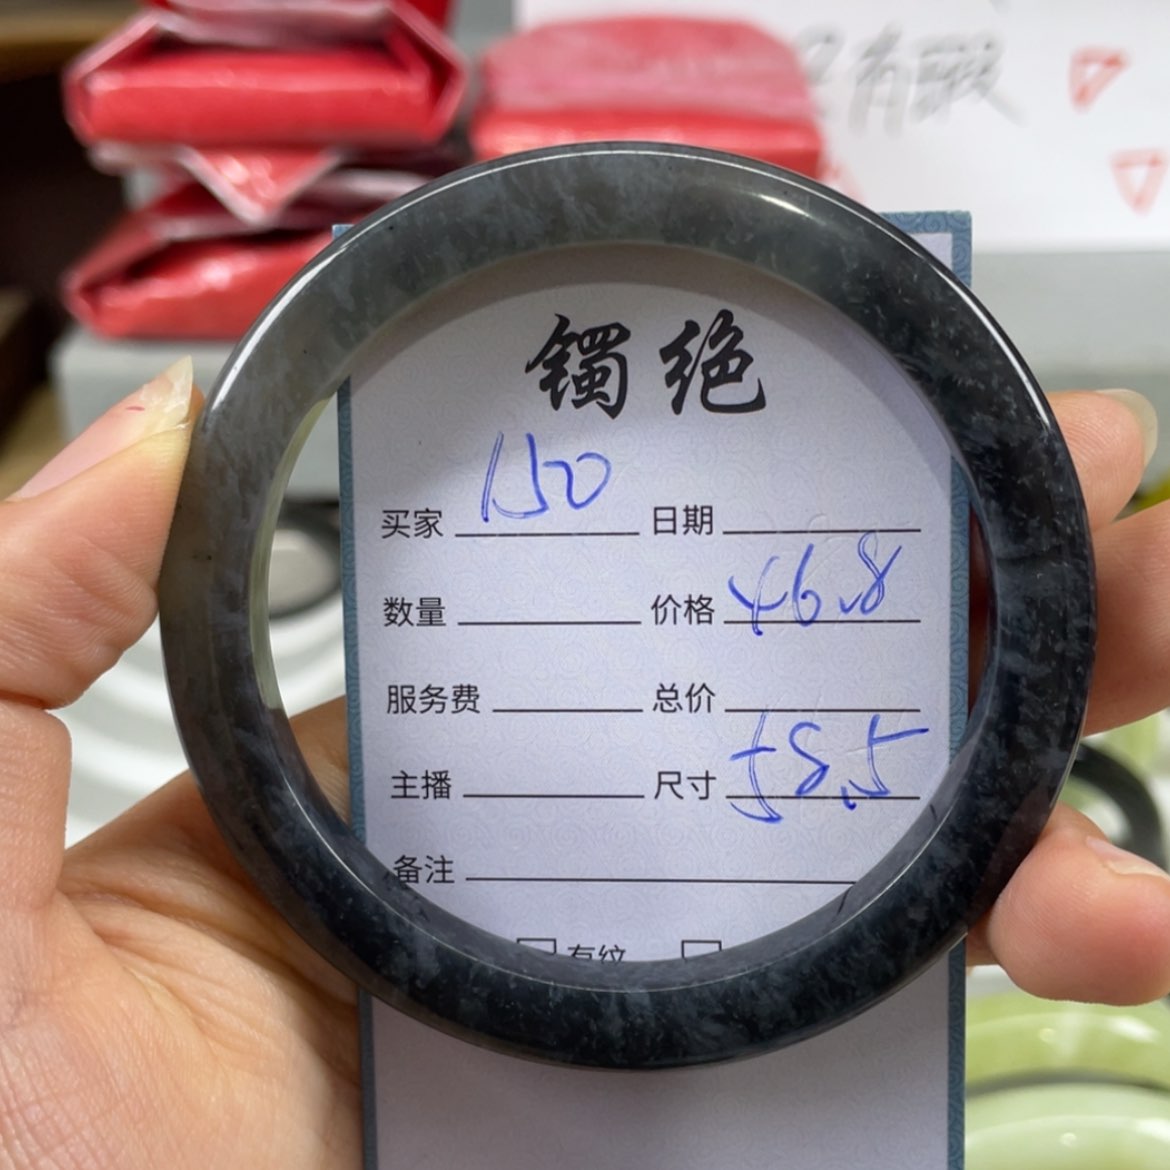 镯绝
买家 150 日期
数量 价格 46.8
服务费 总价
主播 尺寸 58.5
备注
有纹